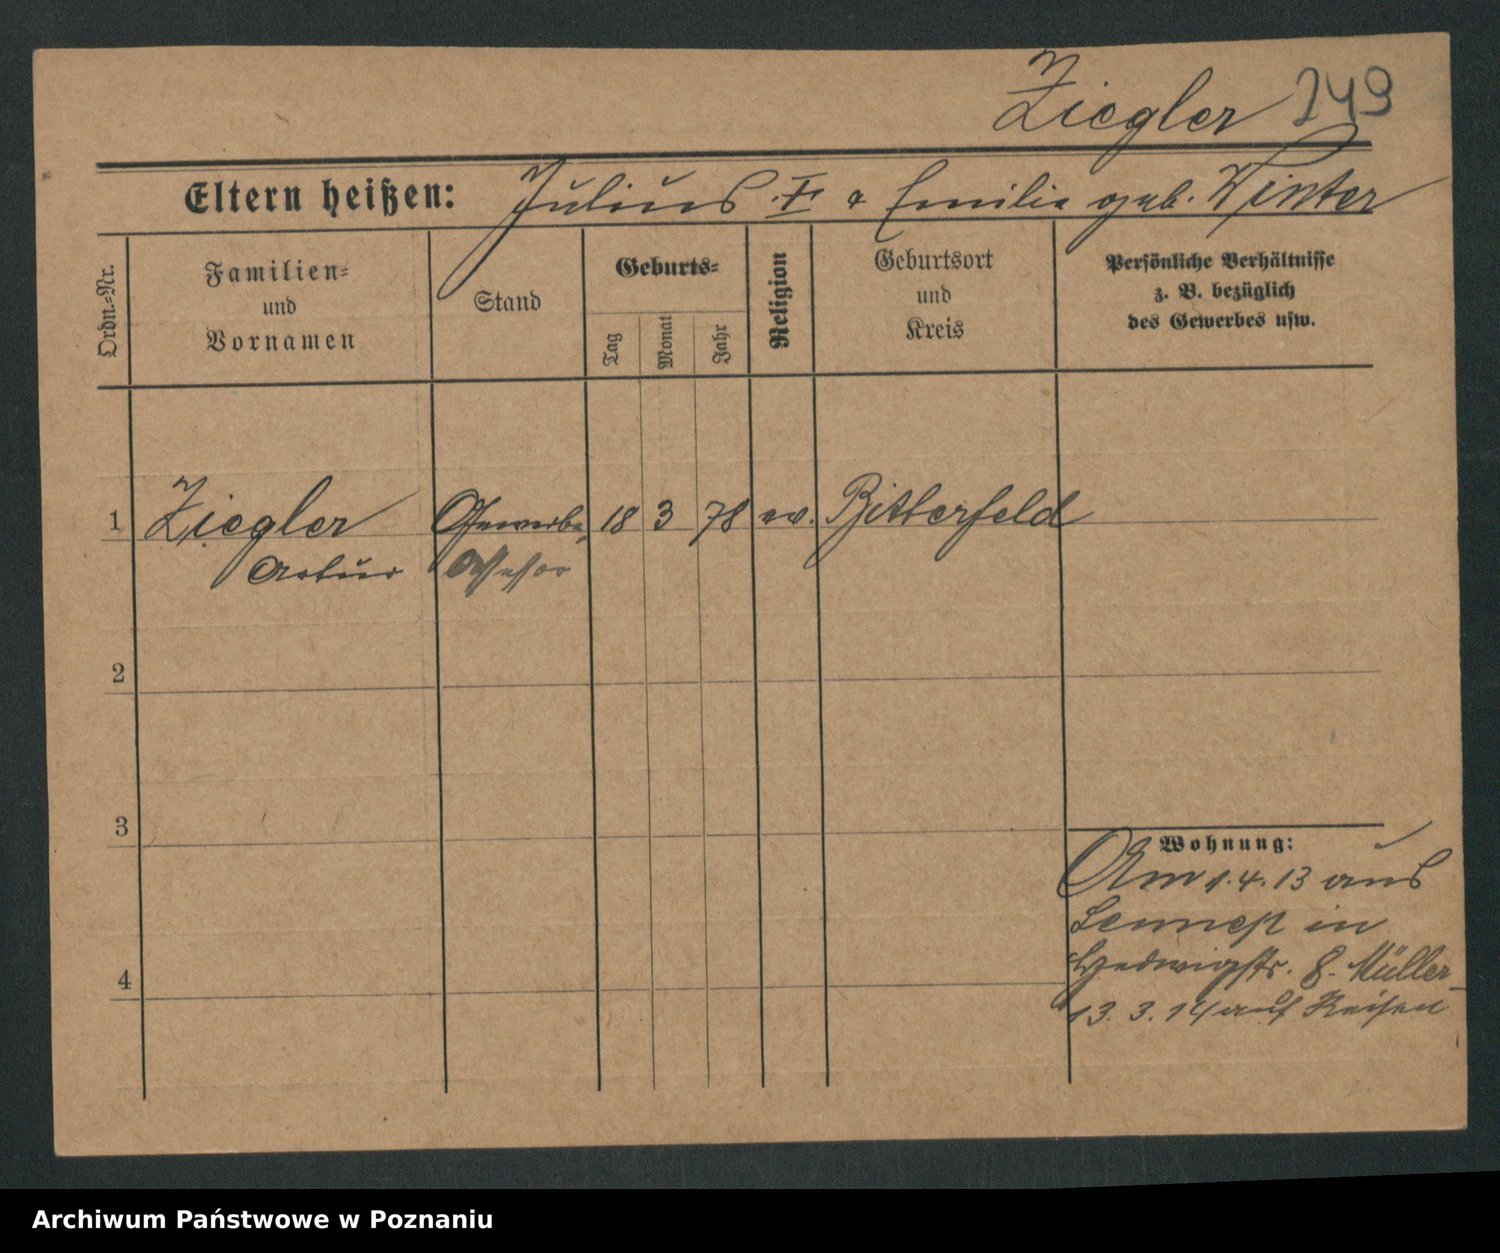 Ziegler 249
Eltern heißen: Julius † & Emilie geb. Winter
Ordn.=Nr.
Familien=
und
Vornamen
Stand
Geburts=
Tag
Monat
Jahr
Religion
Geburtsort
und
Kreis
Persönliche Verhältnisse
z. B. bezüglich
des Gewerbes usw.
1 Ziegler Gewerbe 18 3 78 ev. Bitterfeld
Artur Assessor
2
3
Wohnung:
Am 1.4.13 aus
Lennep in
Hedwigstr. 8. Müller
4
13.3.14 auf Reisen
Archiwum Państwowe w Poznaniu